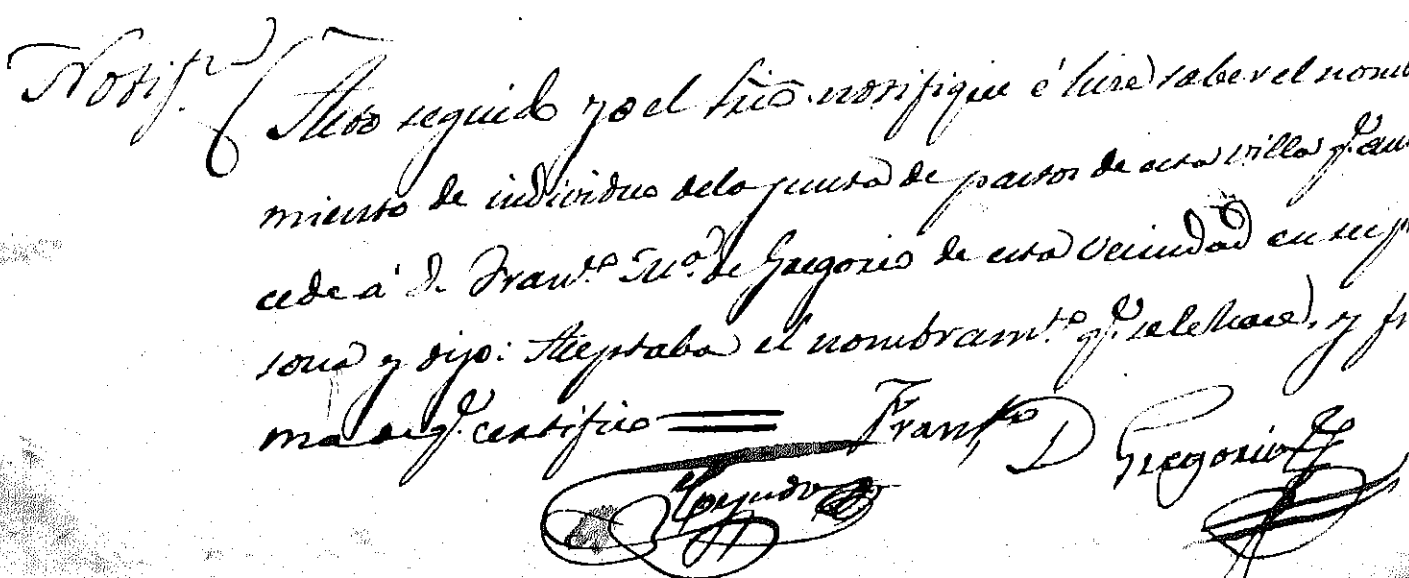 Notif.n
Acto seguido yo el Srio notifiqué é hice saber el nom
miento de individuo de la junta de partos de esta villa q.e
cede á D. Fran.co M.a de Gregorio de esta vecindad en su p
sona y dijo: Aceptaba el nombram.to q.e se le hace, y fi
ma de q.e certifico
Fran.co D Gregorio